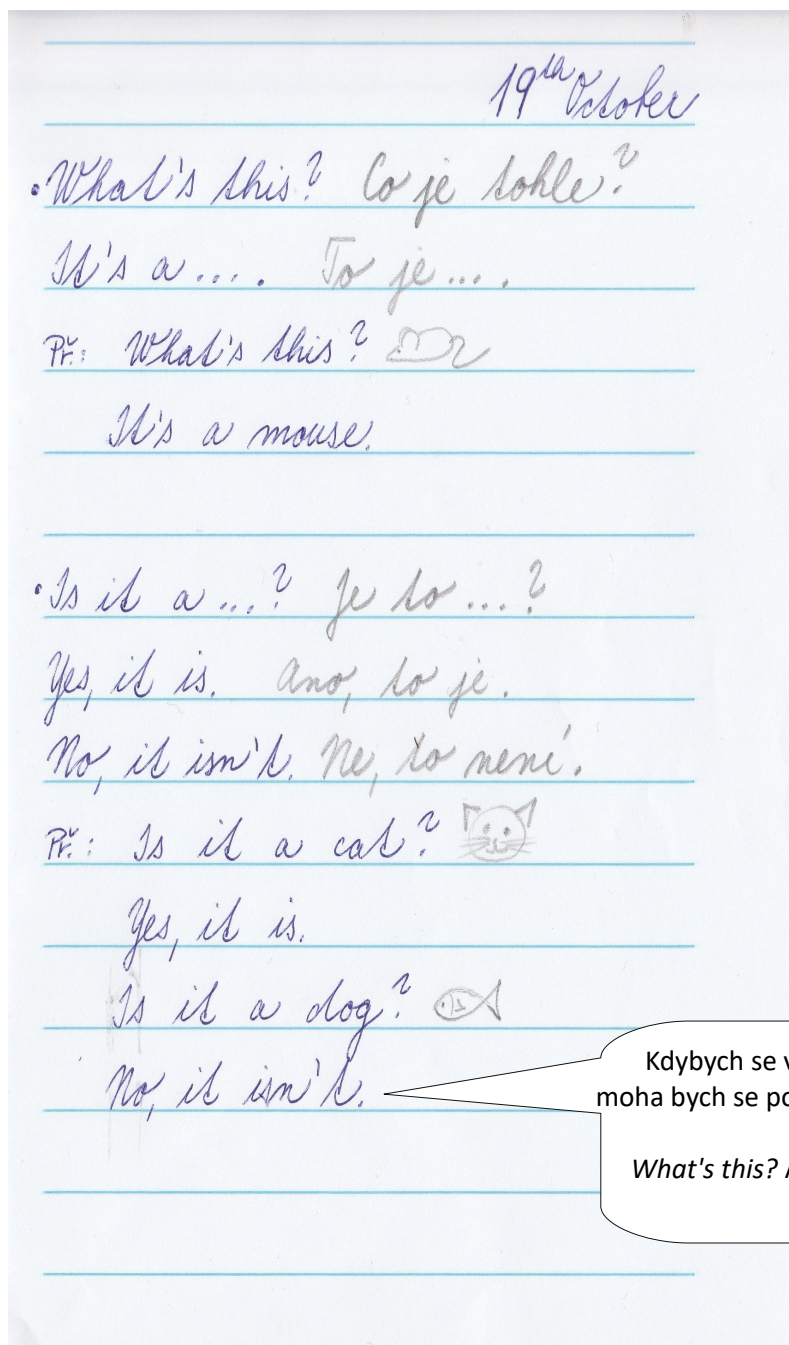 19th October
• What's this? Co je tohle?
It's a .... To je ... .
Př.: What's this?
It's a mouse.
• Is it a ...? Je to ...?
Yes, it is. Ano, to je.
No, it isn't. Ne, to není.
Př.: Is it a cat?
Yes, it is.
Is it a dog?
No, it isn't.
Kdybych se
moha bych se
What's this?